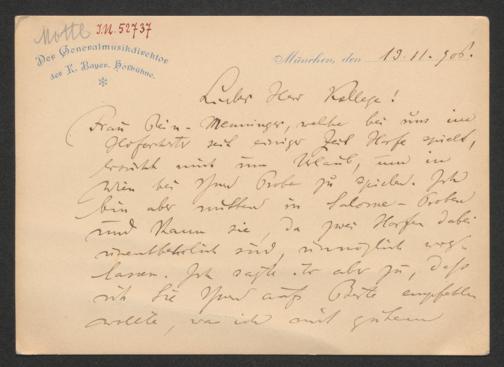 Mottl I.N. 52737
Der Generalmusikdirektor
der K. Bayer. Hofbühne.
München, den 13.11.906.
Lieber Herr Kollege!
Frau Stein-Menninger, welche bei uns im
Hoforchester seit einiger Zeit Harfe spielt,
ersucht mich um Urlaub, um in
Wien bei Ihnen Probe zu spielen. Ich
bin aber mitten in Salome-Proben
und kann sie, da zwei Harfen dabei
unentbehrlich sind, unmöglich weg-
lassen. Ich sagte ihr aber zu, daß
ich sie Ihnen aufs Beste empfehlen
wollte, was ich mit gutem